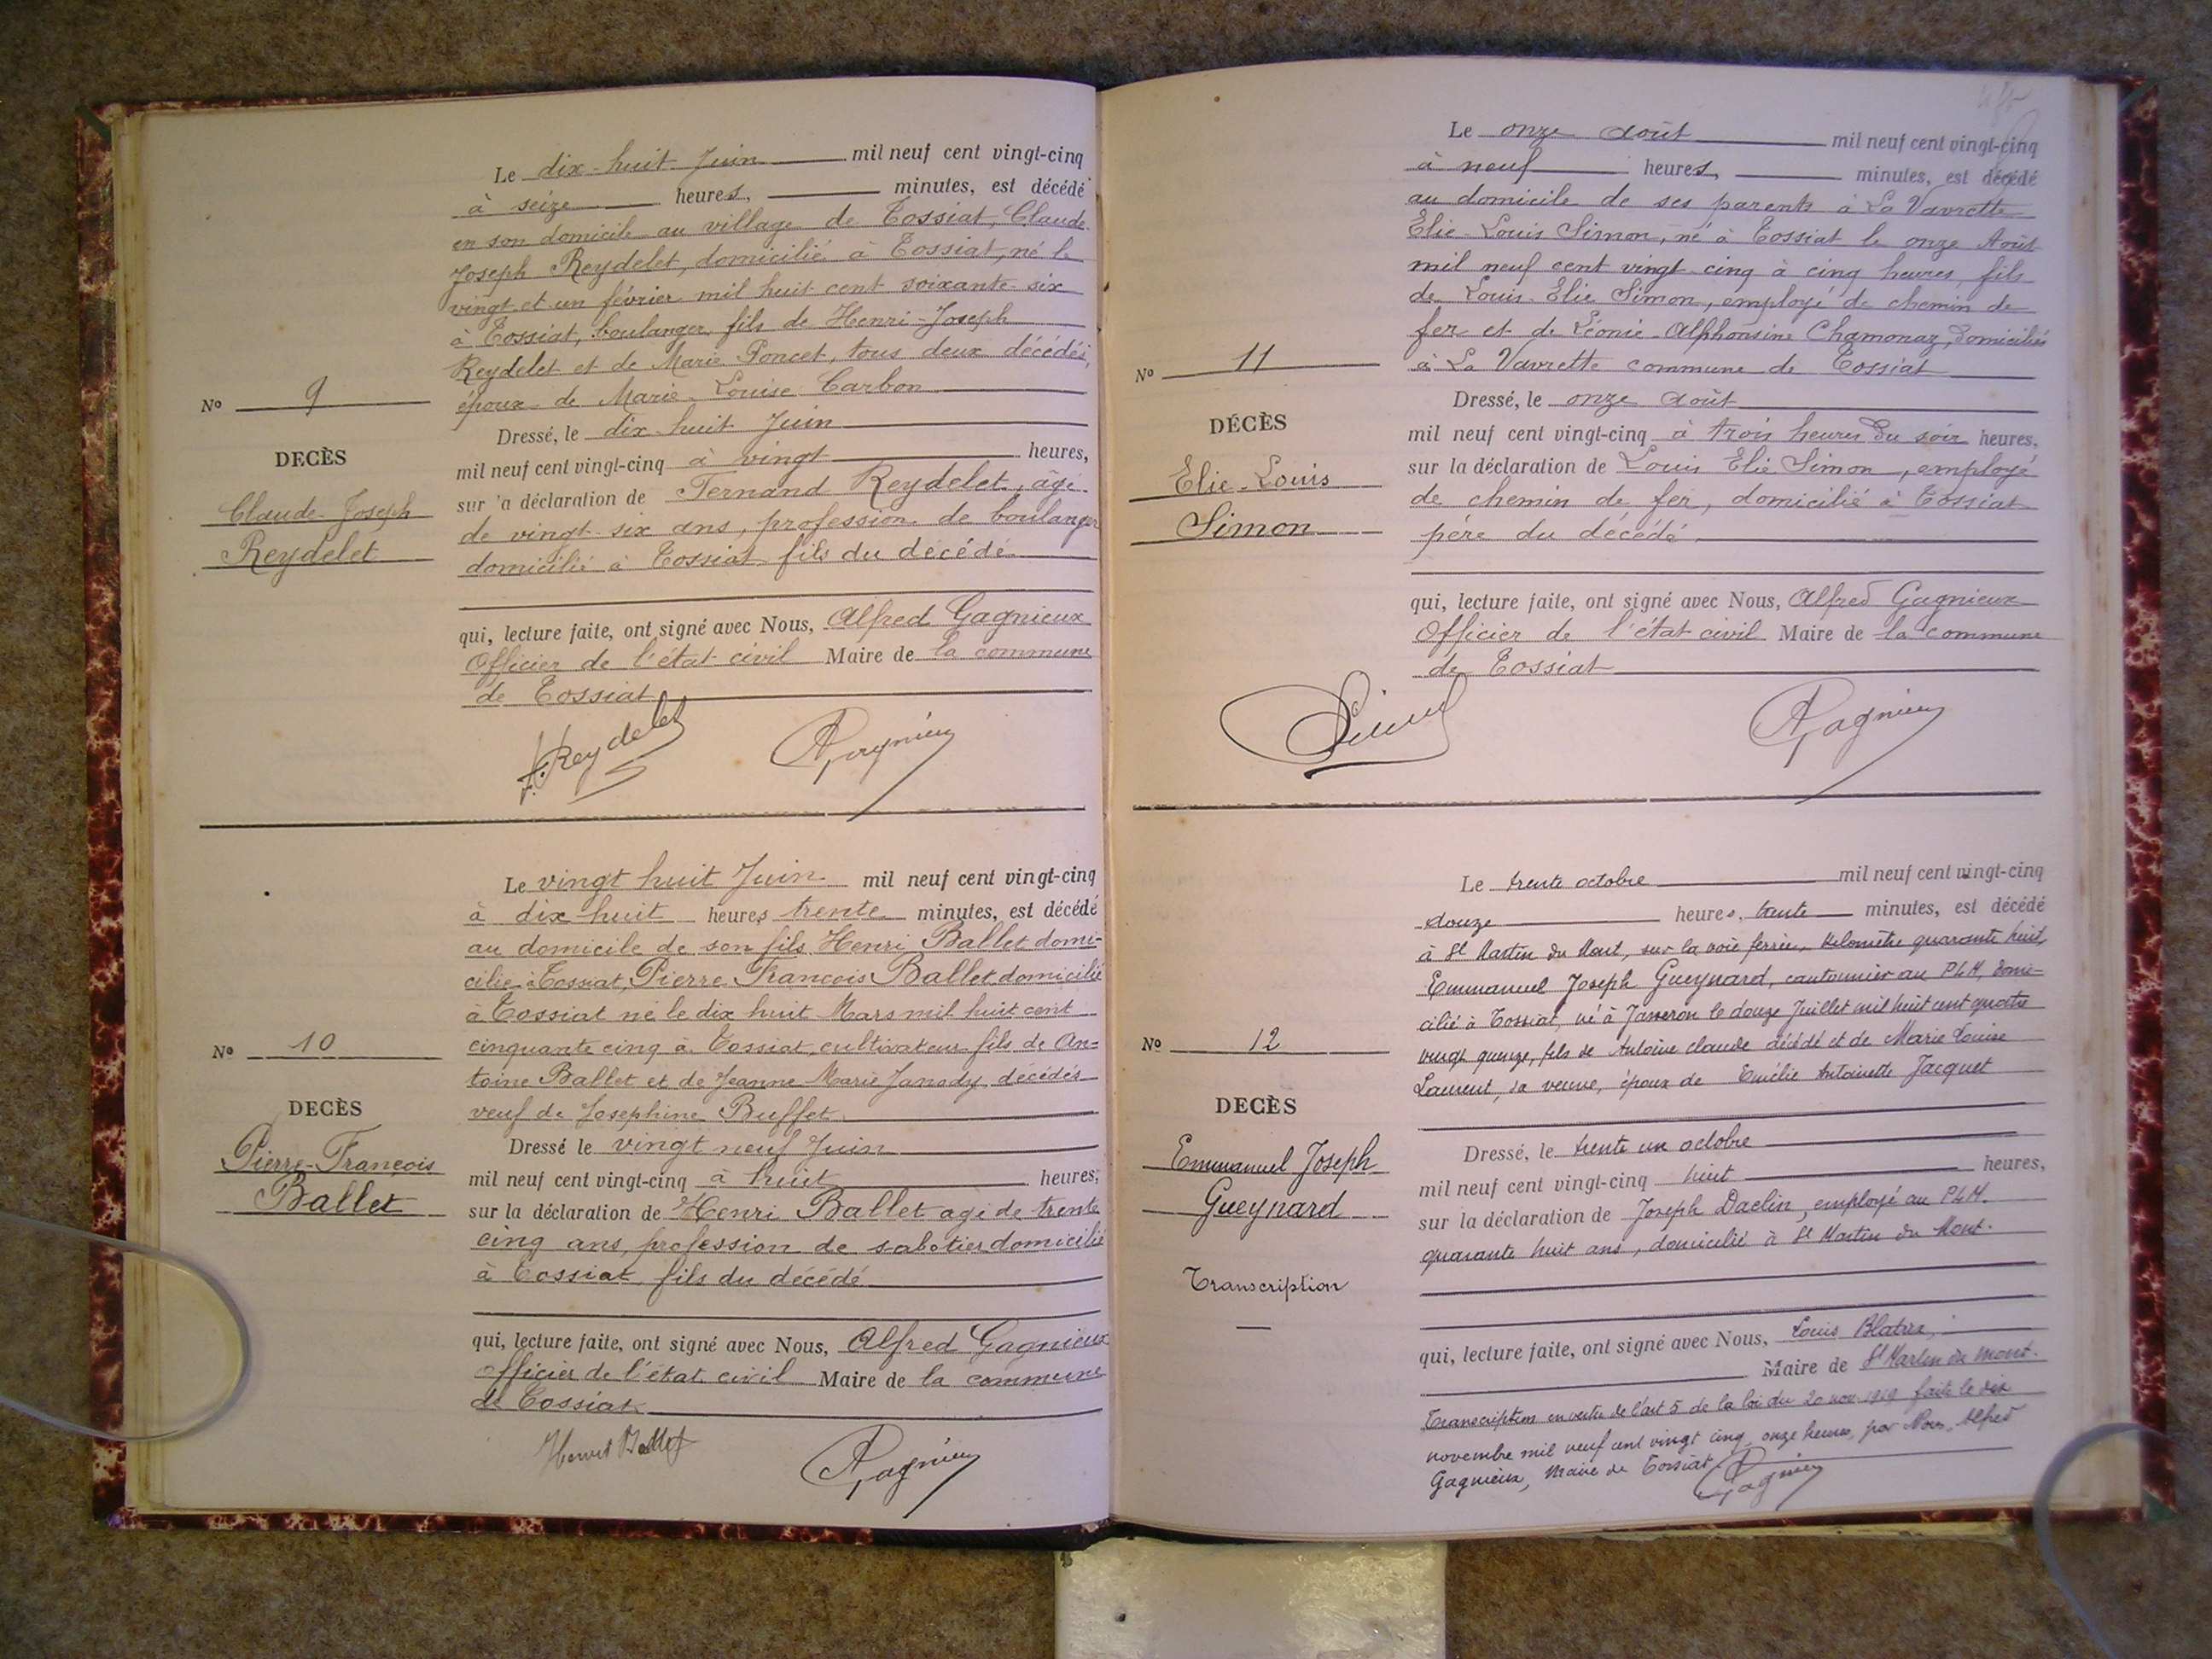 Le dix-huit Juin mil neuf cent vingt-cinq
à seize heures, minutes, est décédé
en son domicile au village de Tossiat, Claude
Joseph Reydelet, domicilié à Tossiat, né le
vingt et un février mil huit cent soixante-six
à Tossiat, boulanger, fils de Henri-Joseph
Reydelet et de Marie Poncet, tous deux décédés,
époux de Marie-Louise Carbon
Dressé, le dix-huit Juin
mil neuf cent vingt-cinq à vingt heures,
sur la déclaration de Fernand Reydelet, âgé
de vingt-six ans, profession de boulanger
domicilié à Tossiat fils du décédé
qui, lecture faite, ont signé avec Nous, Alfred Gagnieux
Officier de l'état civil Maire de la commune
de Tossiat
F. Reydelet AGagnieux
No 9
DECÈS
Claude-Joseph
Reydelet
Le vingt huit Juin mil neuf cent vingt-cinq
à dix huit heures trente minutes, est décédé
au domicile de son fils Henri Ballet domi-
cilié à Tossiat, Pierre François Ballet domicilié
à Tossiat né le dix huit Mars mil huit cent
cinquante cinq à Tossiat, cultivateur fils de An-
toine Ballet et de Jeanne Marie décédés
veuf de Josephine Buffet
Dressé le vingt neuf Juin
mil neuf cent vingt-cinq à huit heures,
sur la déclaration de Henri Ballet agé de trente
cinq ans, profession de sabotier domicilié
à Tossiat fils du décédé
qui, lecture faite, ont signé avec Nous, Alfred Gagnieux
Officier de l'état civil Maire de la commune
de Tossiat
Ballet AGagnieux
No 10
DECÈS
Pierre-François
Ballet
Le onze août mil neuf cent vingt-cinq
à neuf heures, minutes, est décédé
au domicile de ses parents à La Vavrette
Elie-Louis Simon, né à Tossiat le onze Août
mil neuf cent vingt-cinq à cinq heures, fils
de Louis-Elie Simon, employé de chemin de
fer et de Léonie-Alphonsine Chamonaz, domiciliés
à La Vavrette commune de Tossiat
Dressé, le onze août
mil neuf cent vingt-cinq à trois heures du soir heures,
sur la déclaration de Louis Elie Simon, employé
de chemin de fer, domicilié à Tossiat
père du décédé
qui, lecture faite, ont signé avec Nous, Alfred Gagnieux
Officier de l'état civil Maire de la commune
de Tossiat
Simon AGagnieux
No 11
DÉCÈS
Elie-Louis
Simon
Le trente octobre mil neuf cent vingt-cinq
douze heures, trente minutes, est décédé
à St Martin du Mont, sur la voie ferrée, kilomètre quarante huit,
Emmanuel Joseph Gueynard, cantonnier au PLM, domi-
cilié à Tossiat, né à Jasseron le douze Juillet mil huit cent quatre
vingt quinze, fils de Antoine Claude décédé et de Marie Louise
Laurent, sa veuve, époux de Emélie Antoinette Jacquet
Dressé, le trente un octobre
mil neuf cent vingt-cinq huit heures,
sur la déclaration de Joseph Daclin, employé au PLM.
quarante huit ans, domicilié à St Martin du Mont.
qui, lecture faite, ont signé avec Nous, Louis
Maire de St Martin du Mont.
Transcription en vertu de l'art 5 de la loi du 20 nov. 1919 faite le dix
novembre mil neuf cent vingt cinq, onze heures, par Nous, Alfred
Gagnieux, Maire de Tossiat AGagnieux
No 12
DECÈS
Emmanuel Joseph
Gueynard
Transcription